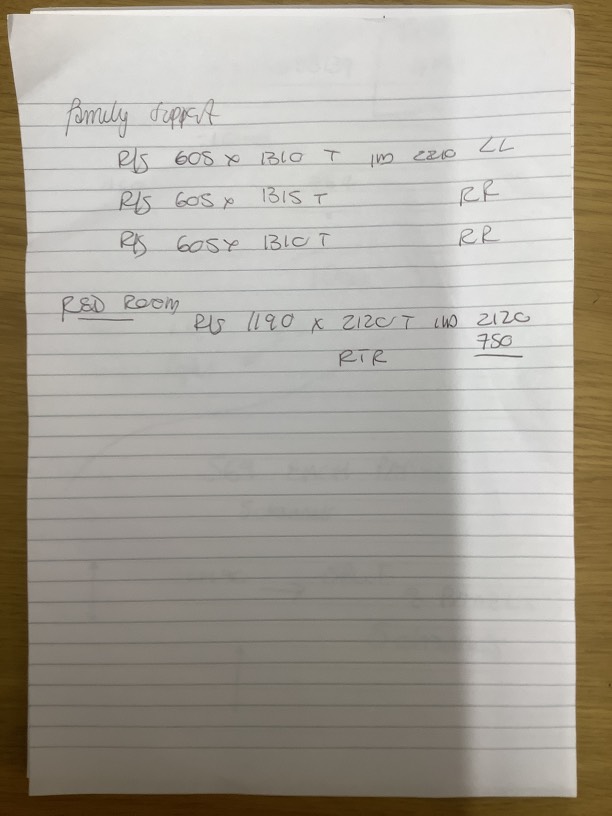 Family Support
R/S 605 x 1310 T IWD 2210 LL
R/S 605 x 1315 T RR
R/S 605 x 1310 T RR
RED ROOM
R/S 1190 x 2120 T IWD 2120
750
RTR